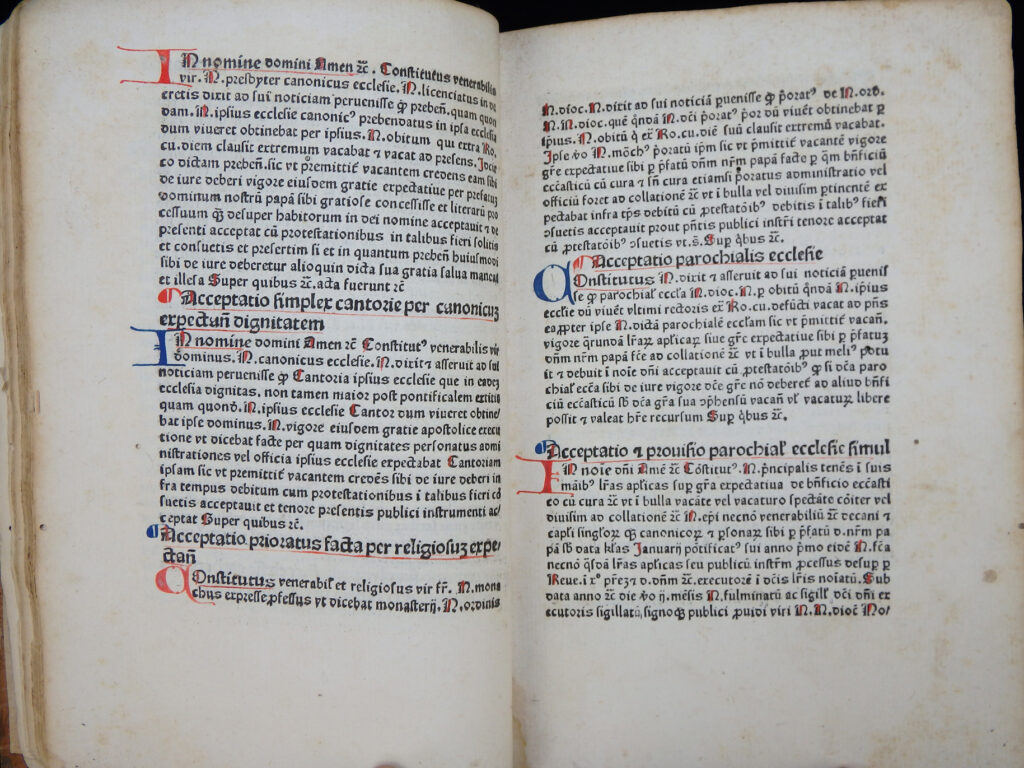 IN nomine domini Amen ⁊c̄. Constitutus venerabilis
vir. N. presbyter canonicus ecclesie. N. licenciatus in de
cretis dixit ad suī noticiam peruenisse ꝙ prebeñ. quam quon
dam. N. ipsius ecclesie canonicꝰ prebendatus in ipsa ecclesia
dum viueret obtinebat per ipsius. N. obitum qui extra Ro.
cu. diem clausit extremum vacabat ⁊ vacat ad presens. Idcir
co dictam prebeñ. sic vt premittit̄ vacantem credens eam sibi
de iure deberi vigore eiusdem gratie expectatiue per prefatuȝ
dominum nostrū papā sibi gratiose concessisse et literarū pro
cessuum qȝ desuper habitorum in dei nomine acceptauit ⁊ de
presenti acceptat cū protestationibus in talibus fieri solitis
et consuetis et presertim si et in quantum prebeñ huiusmodi
sibi de iure deberetur alioquin dicta sua gratia salua maneat
et illesa Super quibus ⁊c̄. acta fuerunt ⁊c̄
Acceptatio simplex cantorie per canonicuȝ
expectañ dignitatem
IN nomine domini Amen ⁊c̄ Constitutꝰ venerabilis vir
dominus. N. canonicus ecclesie. N. dixit ⁊ asseruit ad suī
noticiam peruenisse ꝙ Cantoria ipsius ecclesie que in eadeȝ
ecclesia dignitas. non tamen maior post pontificalem extitit
quam quond̄. N. ipsius ecclesie Cantor dum viueret obtine/
bat ipse dominus. N. vigore eiusdem gratie apostolice execu
tione vt dicebat facte per quam dignitates personatus admi
nistrationes vel officia ipsius ecclesie expectabat Cantoriam
ipsam sic vt premittit̄ vacantem credēs sibi de iure deberi in
fra tempus debitum cum protestationibus ī talibus fieri cō
suetis acceptauit et tenore presentis publici instrumenti ac/
ceptat Super quibus ⁊c̄.
Acceptatio prioratus facta per religiosuȝ expe/
ctañ
COnstitutus venerabilꝭ et religiosus vir fr̄. N. mona
chus expresse ꝓfessus vt dicebat monasterij. N. ordinis
N. dioc. N. dixit ad sui noticiā ꝑuenisse ꝙ p̄oratꝰ de N. ord.
N. N. dioc. quē q̄ndā N. dc̄i p̄oratꝰ p̄or dū viuet̄ obtinebat ꝑ
ip̄ius. N. obitū q̄ ex̄ Ro. cu. diē suū clausit extremū vacabat.
Ipse v̊o N. mōchꝰ p̄oratū ip̄m sic vt p̄mittit̄ vacantē vigore
gr̄e expectatiue sibi ꝑ p̄fatū dn̄m nr̄m papā facte ꝑ q̄m bn̄ficiū
ecc̄asticū cū cura ⁊ sn̄ cura etiamsi p̄oratus administratio vel
officiū foret ad collationē ⁊c̄ vt ī bulla vel diuisim ꝑtinentē ex
pectabat infra tp̄s debitū cū ꝓtestatōibꝰ debitis ī talibꝰ fieri
ↄsuetis acceptauit prout pn̄tis publici instr̄i tenore acceptat
cū ꝓtestatōibꝰ ↄsuetis vt. s̄. Sup q̄bus ⁊c̄.
Acceptatio parochialis ecclesie
COnstitutus N. dixit ⁊ asseruit ad sui noticiā ꝑuenis
se ꝙ parochial̄ eccl̄ia N. dioc. N. ꝑ obitū q̄ndā N. ip̄ius
ecclie dū viuet̄ vltimi rectoris ex̄ Ro. cu. defūcti vacat ad pn̄s
eaꝓpter ipse N. dictā parochialē eccl̄am sic vt p̄mittit̄ vacañ.
vigore q̄rundā lr̄aꝝ apl̄icaꝝ siue gr̄e expectatiue sibi ꝑ p̄fatuȝ
dn̄m nr̄m papā fc̄e ad collationē ⁊c̄ vt ī bulla ꝓut meli⁹ potu
it ⁊ debuit ī noīe dn̄i acceptauit cū ꝓtestatōibꝰ ꝙ si dc̄a paro
chial̄ ecc̄a sibi de iure vigore dc̄e gr̄e nō deberet̄ ad aliud bn̄fi
ciū ecc̄asticū sb̄ dc̄a gr̄a sua ↄp̄hensū vacañ vl̄ vacatuꝝ libere
possit ⁊ valeat h̄re recursum Suꝑ q̄bus ⁊c̄.
Acceptatio ⁊ prouisio parochial̄ ecclesie simul
IN noīe dn̄i Amē ⁊c̄ Cōstitutꝰ. N. p̄ncipalis tenēs ī suis
manibꝰ lr̄as apl̄icas suꝑ gr̄a expectatiua de bn̄ficio ecc̄asti
co cū cura ⁊c̄ vt ī bulla vacāte vel vacaturo spectāte cōiter vel
diuisim ad collationē ⁊c̄ N. ep̄i necnō venerabiliū ⁊c̄ decani ⁊
capl̄i singl̄oꝝ qȝ canonicoꝝ ⁊ ꝑsonaꝝ sibi ꝑ p̄fatū d. nr̄m pa
pā sb̄ data kl̄as Ianuarij pōtificatꝰ sui anno p̄mo eidē N. fc̄a
necnō q̄sdā lr̄as apl̄icas seu publicū instr̄m ꝓcessus desuꝑ ꝑ
Reue. ī xp̄o p̄reȝ ⁊ d. dn̄m. ⁊c̄. executorē ī dc̄is lr̄is noīatū. Sub
data anno ⁊c̄ die v̊o ij. mēsis N. fulminatū ac sigill̄ dc̄i dn̄i ex
ecutoris sigillatū, signoqȝ publici ꝓuidi viri N. N. dioc̄ No/